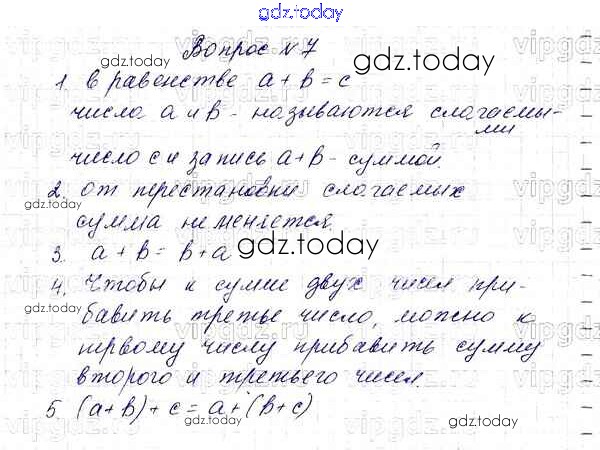 gdz.today
Вопрос №7
gdz.today
1. В равенстве a + b = c
числа a и b - называются слагаемы-
ми
число c и запись a+b - суммой.
2. от перестановки слагаемых
gdz.today
сумма не меняется.
3. a + b = b + a
gdz.today
4. Чтобы к сумме двух чисел при-
gdz.today
бавить третье число, можно к
первому числу прибавить сумму
второго и третьего чисел.
5. (a+b)+c = a+(b+c)
gdz.today
gdz.today